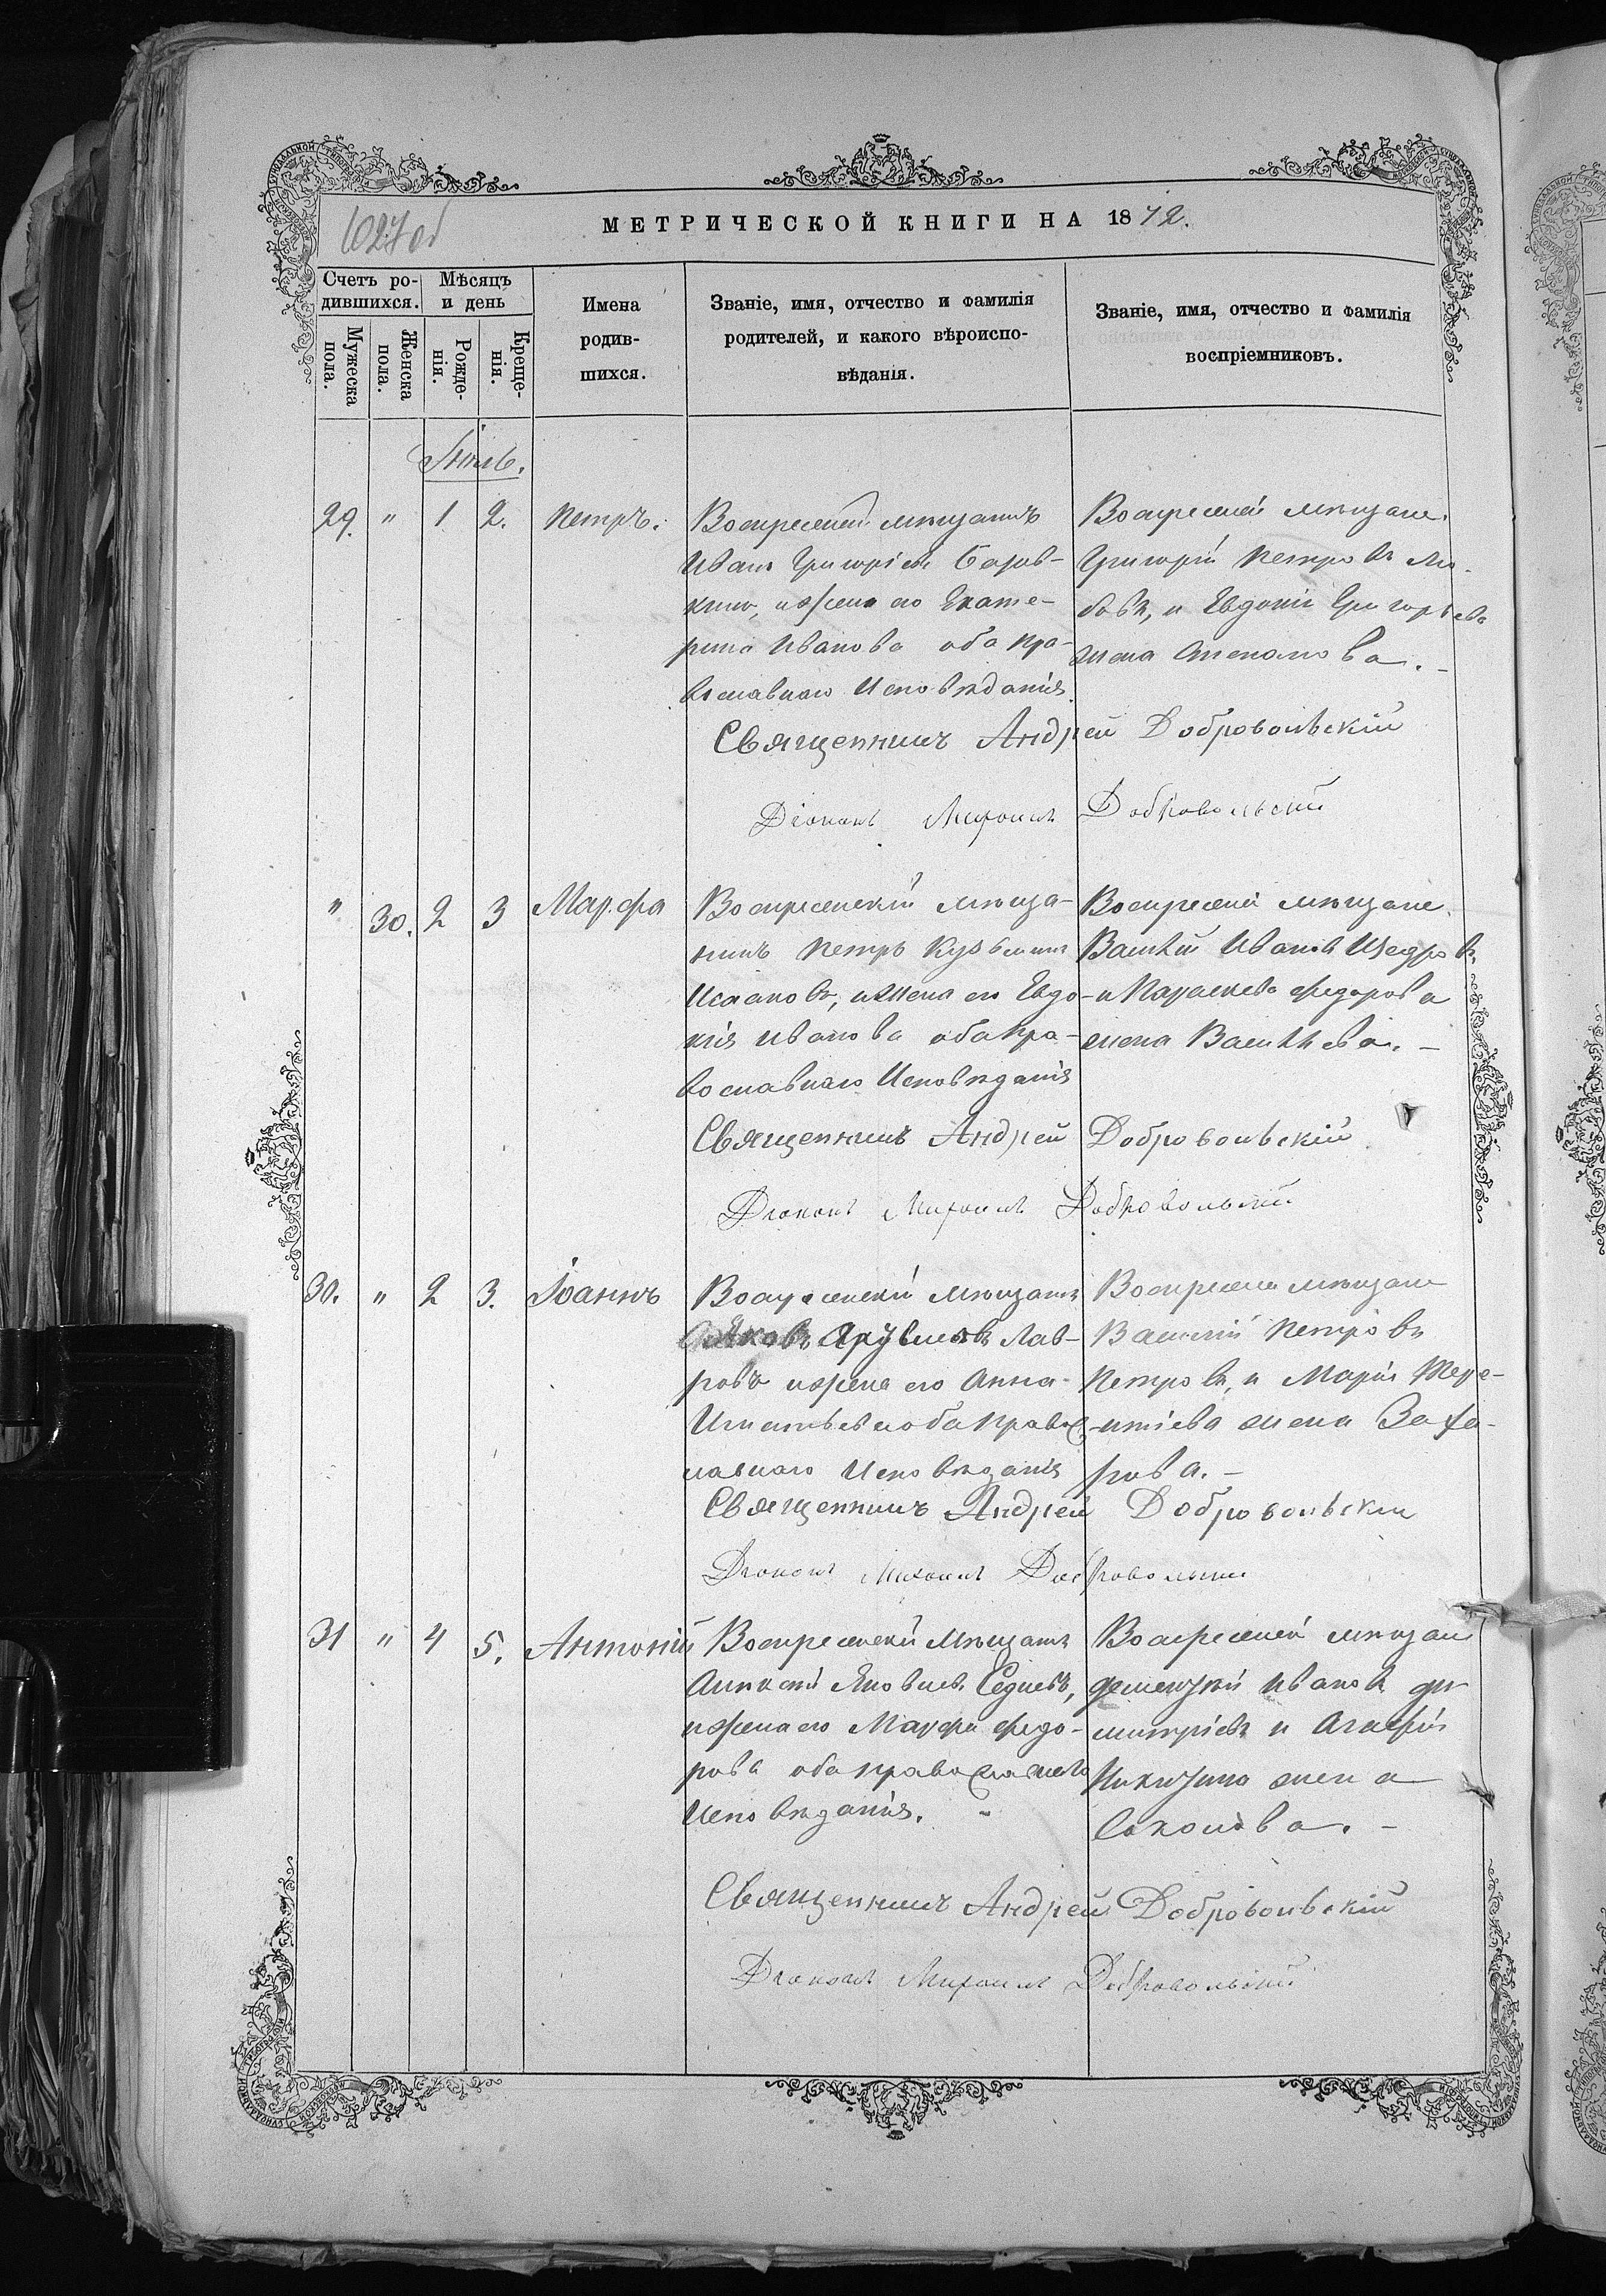 1027 об
МЕТРИЧЕСКОЙ КНИГИ НА 1872.
Счетъ ро-
дившихся.
Мѣсяцъ
и день
Мужеска
пола.
Женска
пола.
Рожде-
нія.
Креще-
нія.
Имена
родив-
шихся.
Званіе, имя, отчество и фамилія
родителей, и какого вѣроиспо-
вѣданія.
Званіе, имя, отчество и фамилія
воспріемниковъ.
29. " 1 2. Петръ.
Воскресенскій мѣщанинъ
Иванъ Григоріевъ
и жена его Екате-
рина Иванова оба пра-
вославнаго Исповѣданія
Воскресенскій мѣщан.
Григорій Петровъ
и Евдокія Григорьева
жена Степанова. -
Священникъ Андрей Добровольскій
Діаконъ Михаилъ Добровольскій
" 30. 2 3 Марфа
Воскресенскій мѣща-
нинъ Петръ Кузьминъ
Исааковъ, и жена его Евдо-
кія Иванова оба пра-
вославнаго Исповѣданія
Воскресенскій мѣщане.
Василій Ивановъ Щедровъ
и Параскева Федорова
жена Васильева. -
Священникъ Андрей Добровольскій
Діаконъ Михаилъ Добровольскій
30. " 2 3. Іоаннъ
Воскресенскій мѣщанинъ
Яковъ Лав-
ровъ и жена его Анна
Игнатьева оба правос-
лавнаго Исповѣданія
Воскресенскій мѣщане
Василій Петровъ
Петровъ, и Марія Тере-
нтіева жена Заха-
рова. -
Священникъ Андрей Добровольскій
Діаконъ Михаилъ Добровольскій
31 " 4 5. Антоній
Воскресенскій мѣщанинъ
Алексѣй Яковлевъ Седневъ,
и жена его Марфа Федо-
рова оба православнаго
Исповѣданія. -
Воскресенскій мѣщане
Дементій Ивановъ Ди-
митріевъ и Агафія
Никитина жена
Соколова. -
Священникъ Андрей Добровольскій
Діаконъ Михаилъ Добровольскій